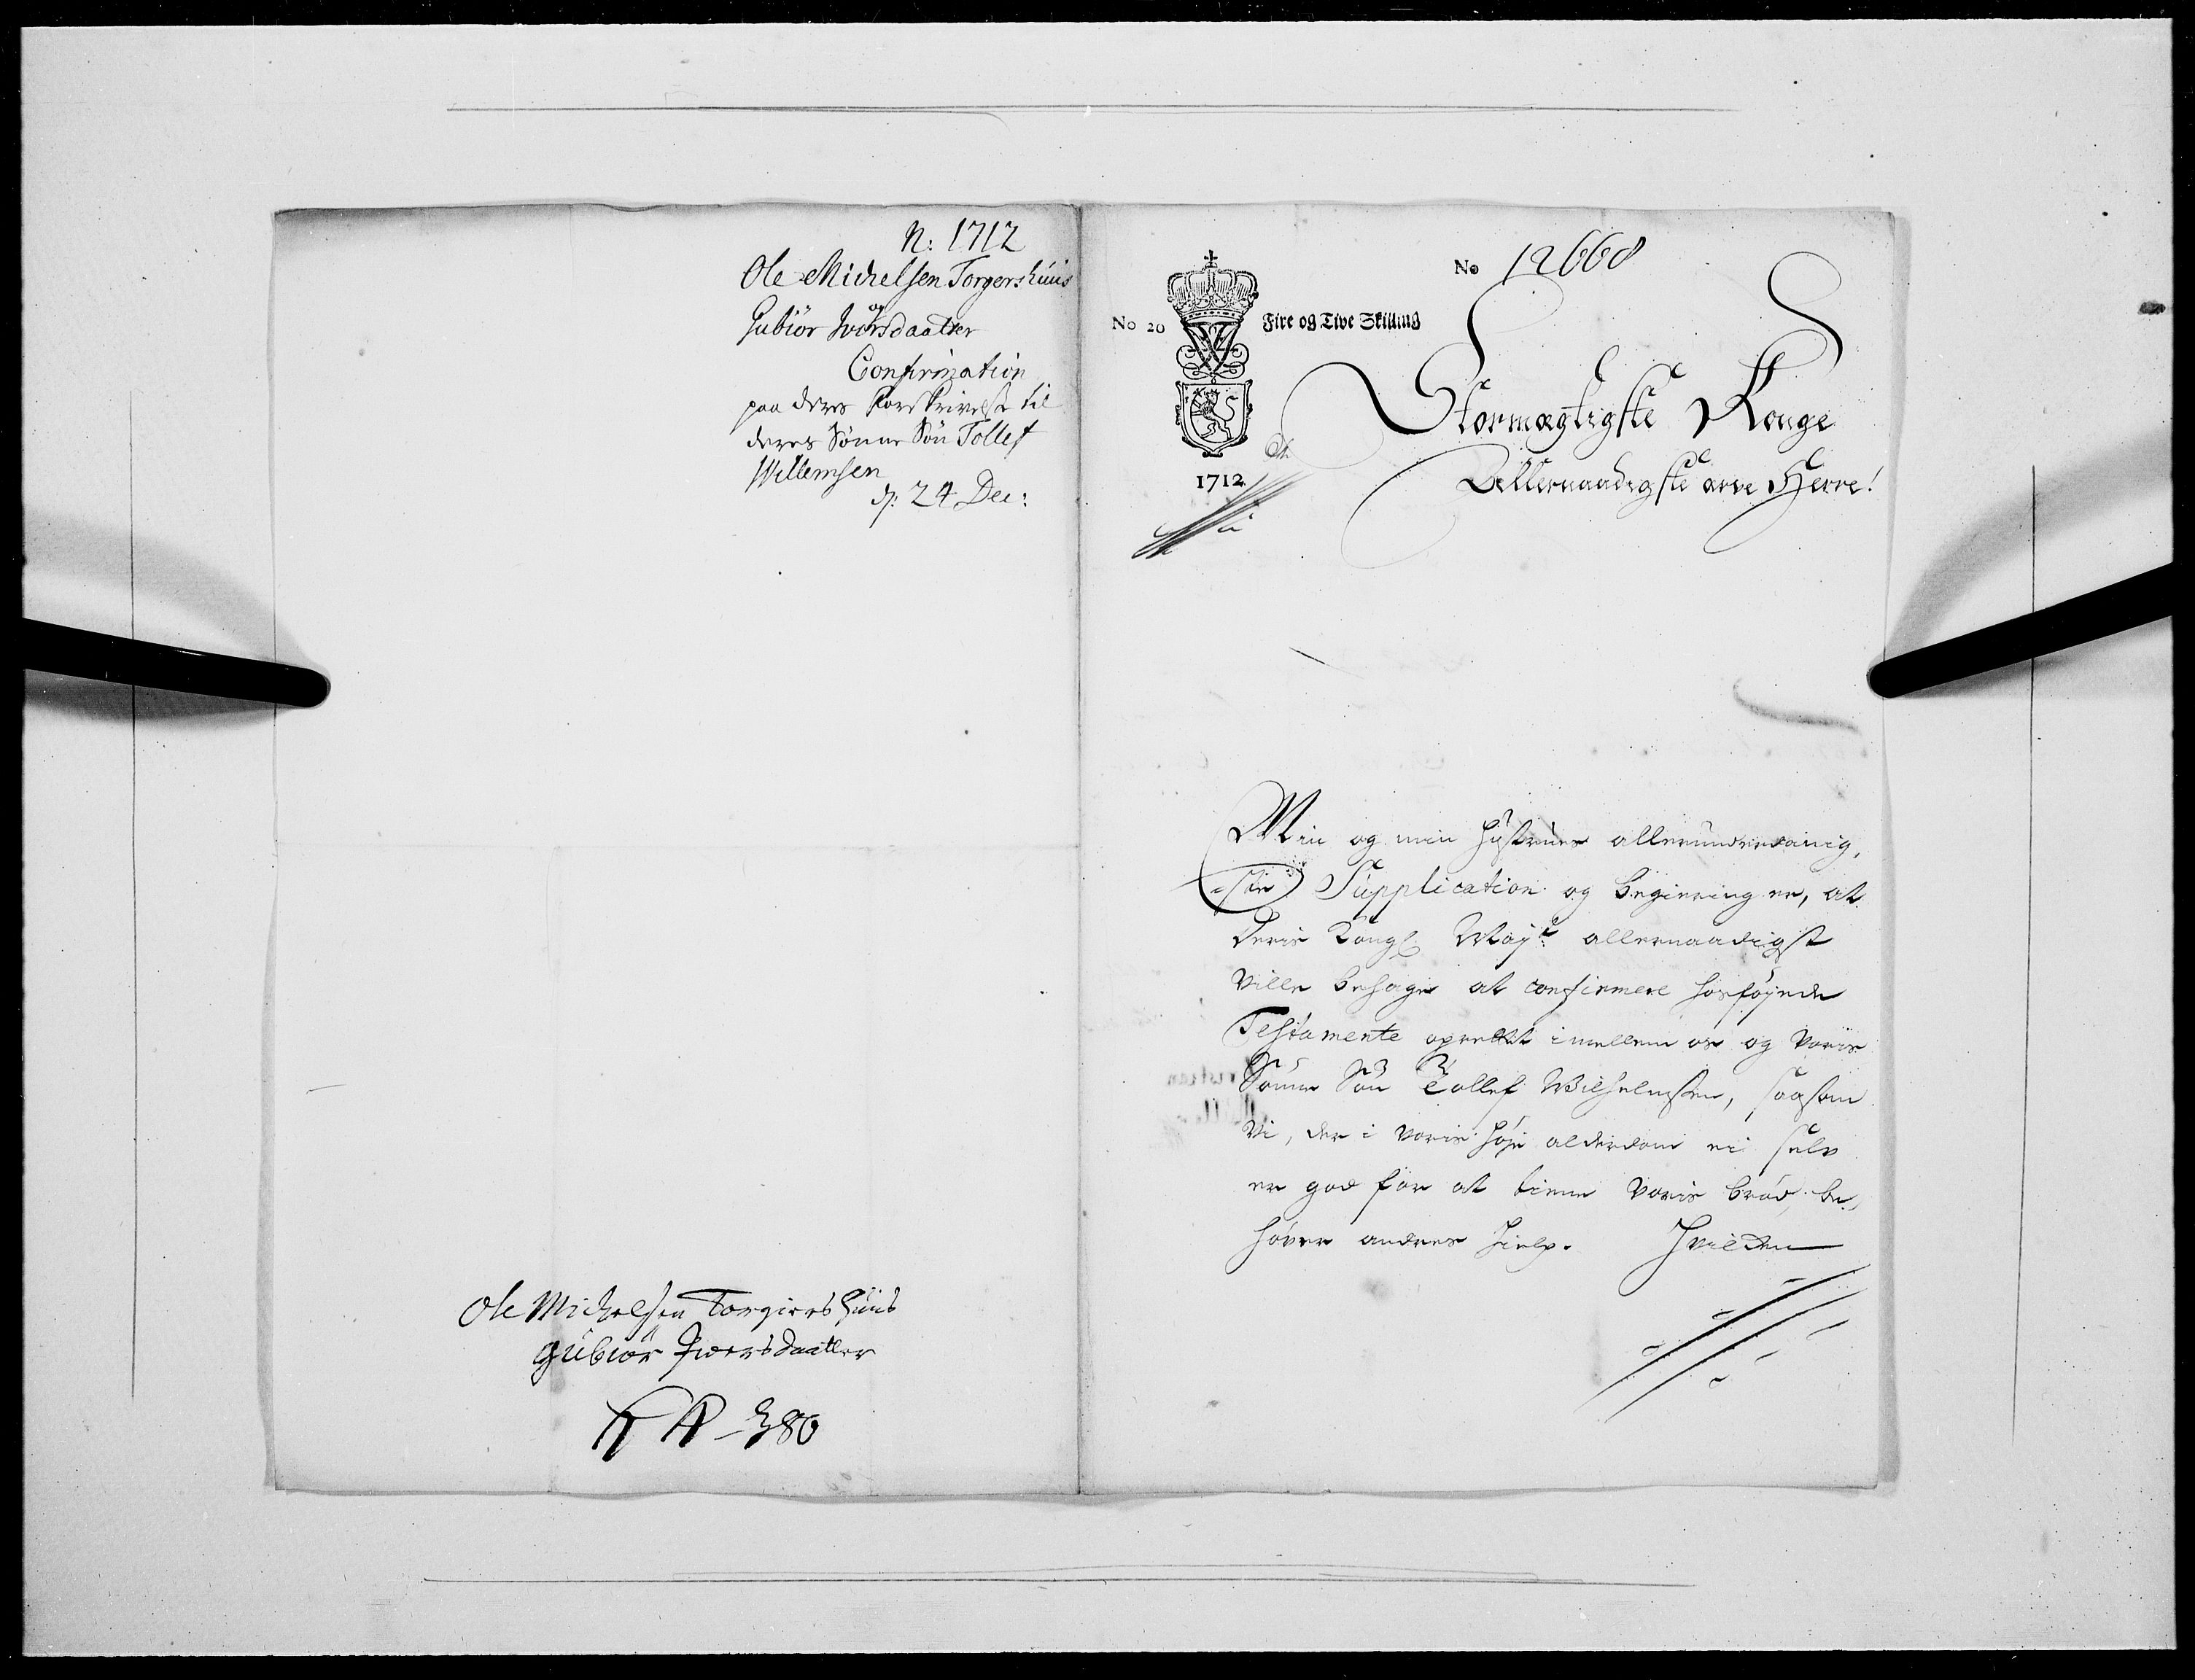 N: 1712
Ole Michelsen Torgershuus
og
Gubiör Iversdaatter
Confirmation
paa deres Forskrivelse til
deres Sönne Sön Tollef
Willemsen
d: 24 Dec:
Ole Michelsen Torgiers huus
Gubiör Iversdaatter
No 12668
No 20
Fire og Tive Skilling
1712
Stormægtigste Konge
Allernaadigste arve Herre!
Min og min Hustrues allerunderdanig,
ste Supplication og begiering er, at
Deris Kongl. Mayt: allernaadigst
Ville behage at confirmere hosföyede
Testamente oprettet imellem os og Voris
Sönne Sön Tollef Wilhelmsen, saasom
Vi, der i Voris höje alderdom ei selv
er god for at tiene Voris bröd, be,
höver andres hielp. Hvilken